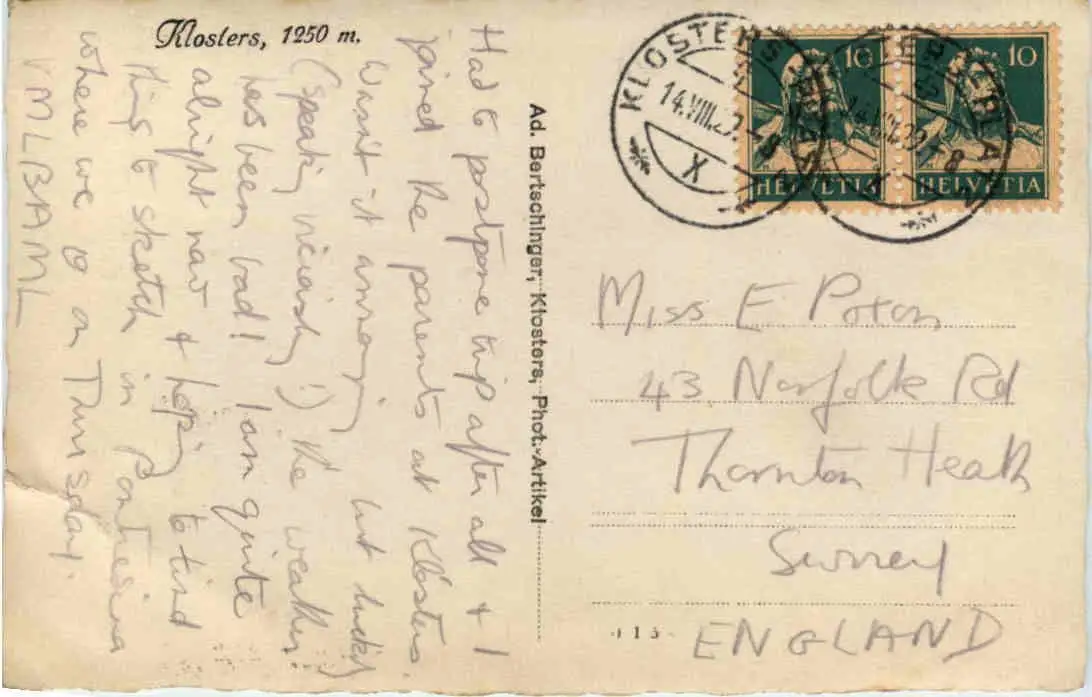 Klosters, 1250 m.
Had to postpone trip after all & I
joined the parents at Klosters.
Wasn't it annoying but luckily
(speaking viciously!) the weather
has been bad! I am quite
alright now & hoping to find
things to sketch in Pontresina
where we go on Thursday.
MLBAML
Ad. Bertschinger, Klosters, Phot.-Artikel
KLOSTERS PLATZ
14.VIII.29-8
X
KLOSTERS PLATZ
14.VIII.29-8
10
HELVETIA
10
HELVETIA
Miss E Poxon
43. Norfolk Rd
Thornton Heath
Surrey
ENGLAND